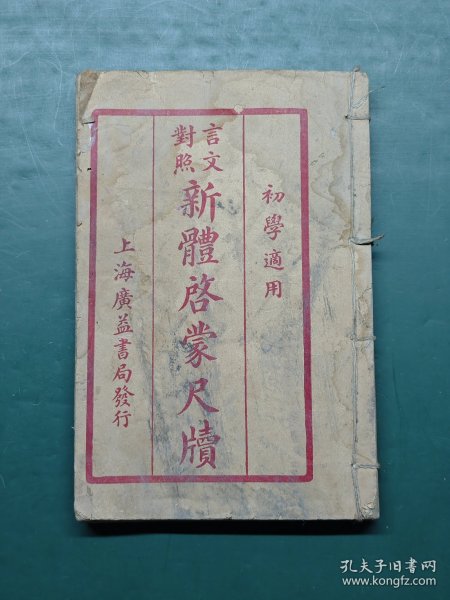 初學適用
言文
對照
新體啓蒙尺牘
上海廣益書局發行
孔夫子旧书网
www.kongfz.com